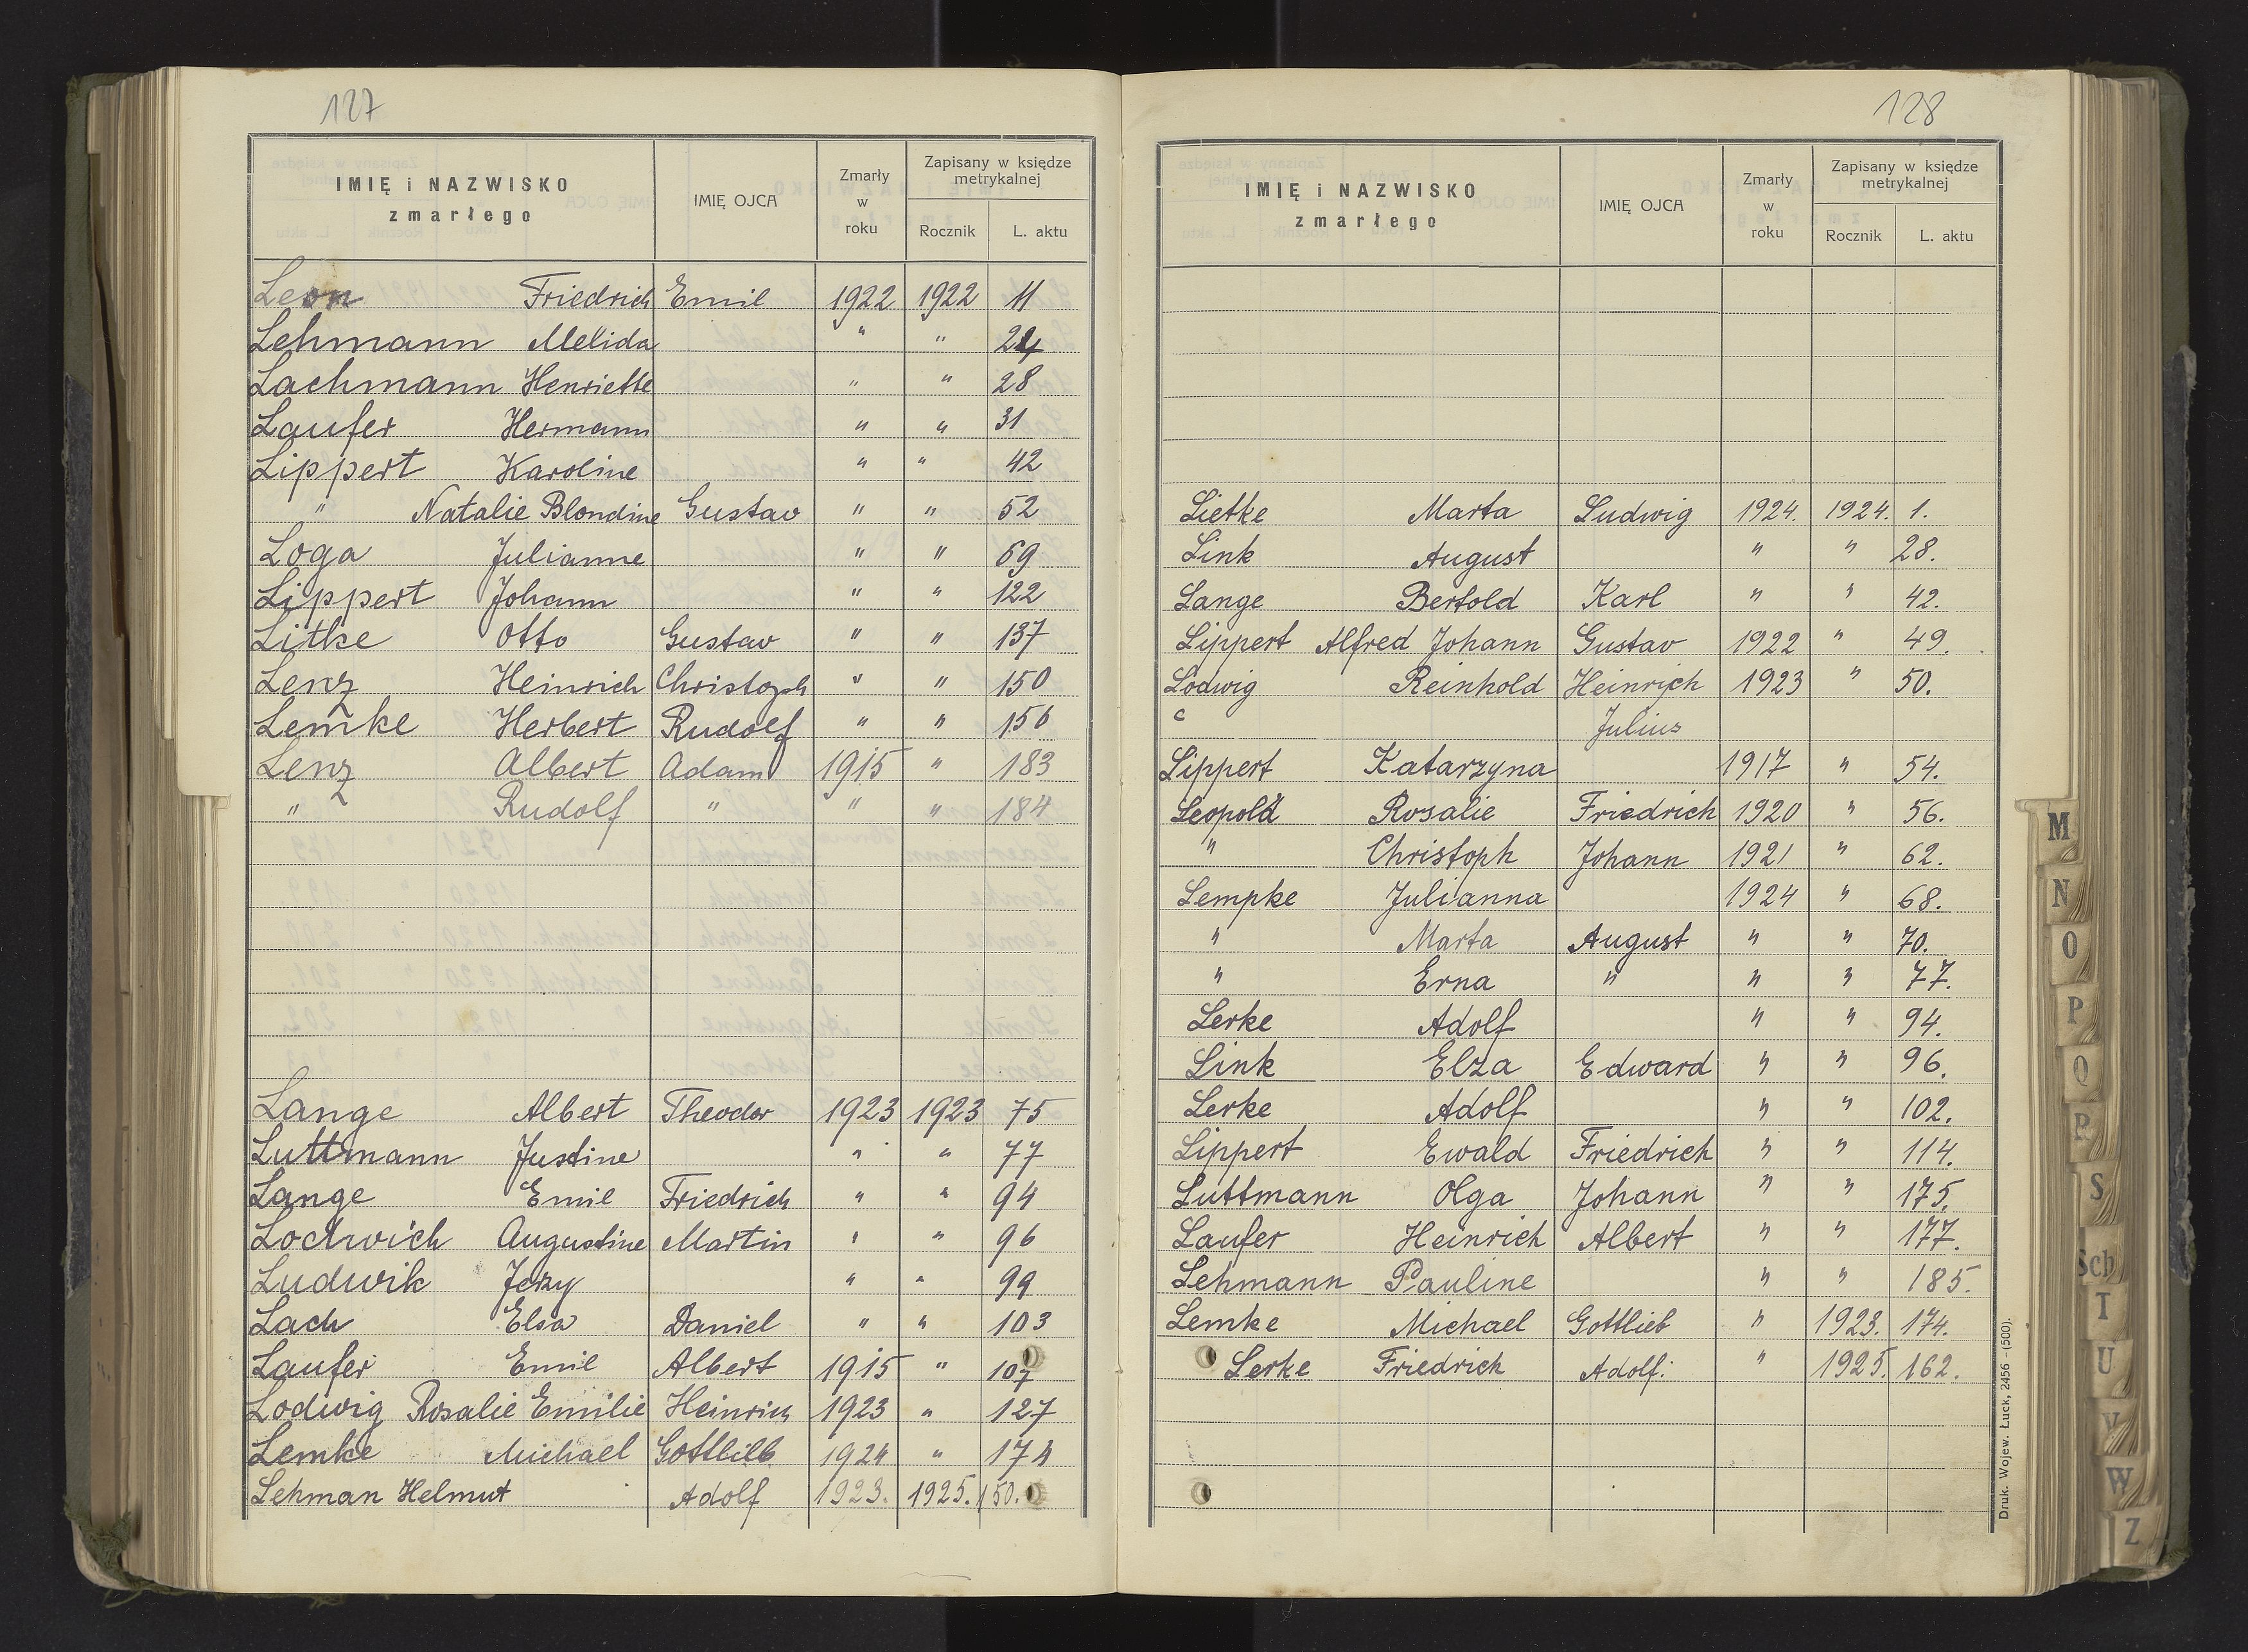 127
IMIĘ i NAZWISKO zmarłego IMIĘ OJCA Zmarły w roku Zapisany w księdze metrykalnej Rocznik L. aktu
Leon Friedrich Emil 1922 1922 11
Lehmann Melida " " 24
Lachmann Henriette " " 28
Laufer Hermann " " 31
Lippert Karoline " " 42
" Natalie Blondine Gustav " " 52
Loga Julianne " " 69
Lippert Johann " " 122
Litke Otto Gustav " " 137
Lenz Heinrich Christoph " " 150
Lemke Herbert Rudolf " " 156
Lenz Albert Adam 1915 " 183
" Rudolf " " " 184
Lange Albert Theodor 1923 1923 75
Luttmann Justine " " 77
Lange Emil Friedrich " " 94
Lodwich Augustine Martin " " 96
Ludwik Jerzy " " 99
Lach Elsa Daniel " " 103
Laufer Emil Albert 1915 " 107
Lodwig Rosalie Emilie Heinrich 1923 " 127
Lemke Michael Gottlieb 1924 " 174
Lehman Helmut Adolf 1923. 1925. 150.
128
IMIĘ i NAZWISKO zmarłego IMIĘ OJCA Zmarły w roku Zapisany w księdze metrykalnej Rocznik L. aktu
Lietke Marta Ludwig 1924. 1924. 1.
Link August " " 28.
Lange Bertold Karl " " 42.
Lippert Alfred Johann Gustav 1922 " 49.
Lodwig Reinhold Heinrich 1923 " 50.
Julius
Lippert Katarzyna 1917 " 54.
Leopold Rosalie Friedrich 1920 " 56.
" Christoph Johann 1921 " 62.
Lempke Julianna 1924 " 68.
" Marta August " " 70.
" Erna " " " 77.
Lerke Adolf " " 94.
Link Elza Edward " " 96.
Lerke Adolf " " 102.
Lippert Ewald Friedrich " " 114.
Luttmann Olga Johann " " 175.
Laufer Heinrich Albert " " 177.
Lehmann Pauline " " 185.
Lemke Michael Gottlieb " 1923. 174.
Lerke Friedrich Adolf. " 1925. 162.
Druk. Wojew. Łuck, 2456 – (500).
M
N
O
P
Q
R
S
Sch
T
U
V
W
Z